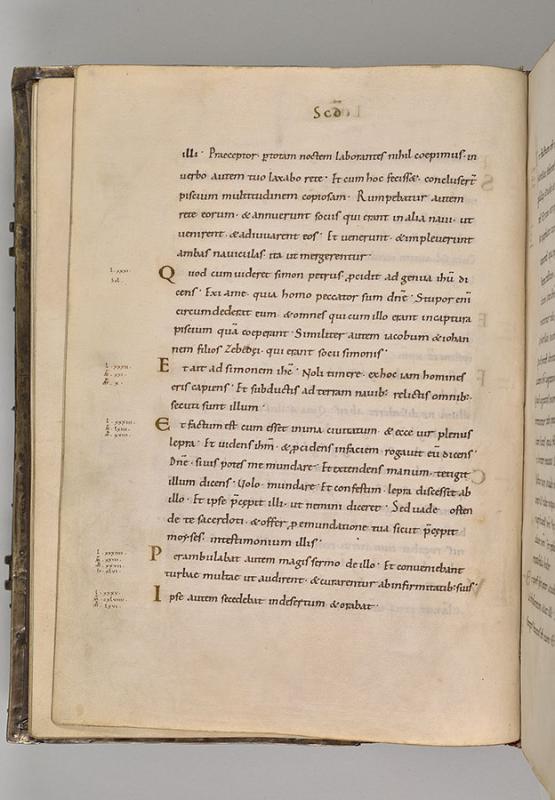 Scđ
illi · Praeceptor · p totam noctem laborantes nihil coepimus · in
verbo autem tuo laxabo rete · Et cum hoc fecissent · conclusert̄
piscium multitudinem copiosam · Rumpebatur autem
rete eorum · & annuerunt sociis qui erant in alia navi · ut
venirent · & adiuvarent eos · Et venerunt · & impleverunt
ambas naviculas · ita ut mergerentur ·
Quod cum videret simon petrus · pcidit ad genua ih̄u di
cens · Exi a me · quia homo peccator sum dn̄e · Stupor eni̅
circumdederat eum · & omnes qui cum illo erant in captura
piscium quā coeperant · Similiter autem iacobum & iohan
nem filios Zebedęi · qui erant socii simonis ·
Et ait ad simonem ih̄c · Noli timere · ex hoc iam homines
eris capiens · Et subductis ad terram navib: relictis omnib:
secuti sunt illum ·
Et factum est cum esset in una civitatum · & ecce vir plenus
lepra · Et videns ih̄m · & pcidens in faciem · rogavit eū dicens
Dn̄e · si vis potes me mundare · Et extendens manum · tetigit
illum dicens · Volo · mundare · Et confestim · lepra discessit ab
illo · Et ipse p̄cępit illi · ut nemini diceret · Sed vade osten
de te sacerdoti · & offer p emundatione tua sicut p̄cępit
moyses · in testimonium illis ·
Perambulabat autem magis sermo de illo · Et conveniebant
turbae multae ut audirent · & curarentur ab infirmitatib: suis ·
Ipse autem secedebat in desertum & orabat ·